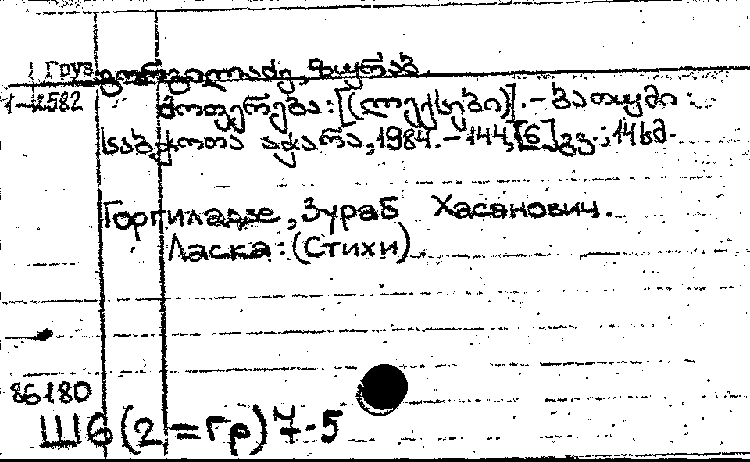 Груз გორგილაძე, ზურაბ.
1-2582 მოფერება: [(ლექსები)]. - ბათუმი:
საბჭოთა აჭარა, 1984. - 144, [6] გვ.; 14 სმ.
Горгиладзе, Зураб Хасанович.
Ласка: (Стихи).
86180
Ш6(2=Гр)7-5